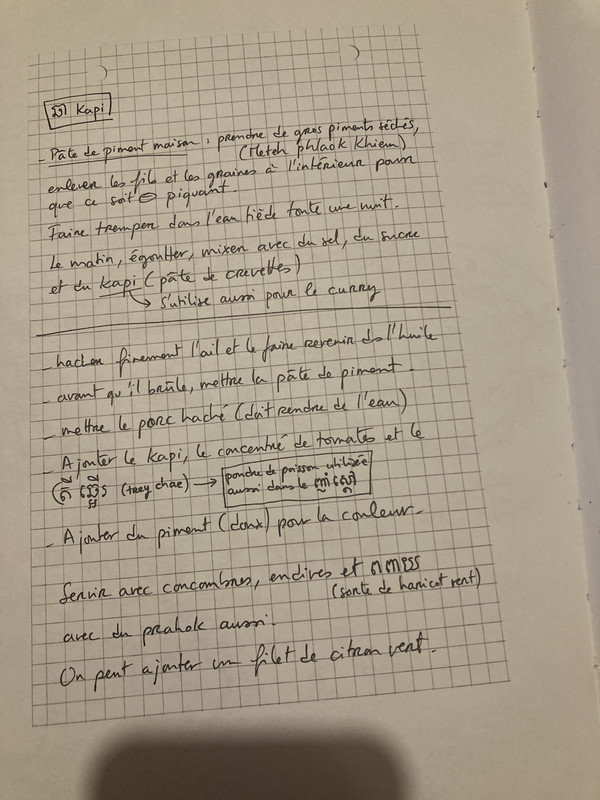 Kapi
- Pâte de piment maison : prendre de gros piments séchés,
(Metek phlaok Khiem)
enlever les fils et les graines à l'intérieur pour
que ce soit ⊖ piquant.
Faire tremper dans l'eau tiède toute une nuit.
Le matin, égoutter, mixer avec du sel, du sucre
et du Kapi (pâte de crevettes)
↳ s'utilise aussi pour le curry
- hacher finement l'ail et le faire revenir ds l'huile
- avant qu'il brûle, mettre la pâte de piment.
- mettre le porc haché (doit rendre de l'eau)
- Ajouter le Kapi, le concentré de tomates et le
(trey chae) → poudre de poisson utilisée
aussi dans le
- Ajouter du piment (doux) pour la couleur.
Servir avec concombres, endives et
(sorte de haricot vert)
avec du prahok aussi.
On peut ajouter un filet de citron vert.